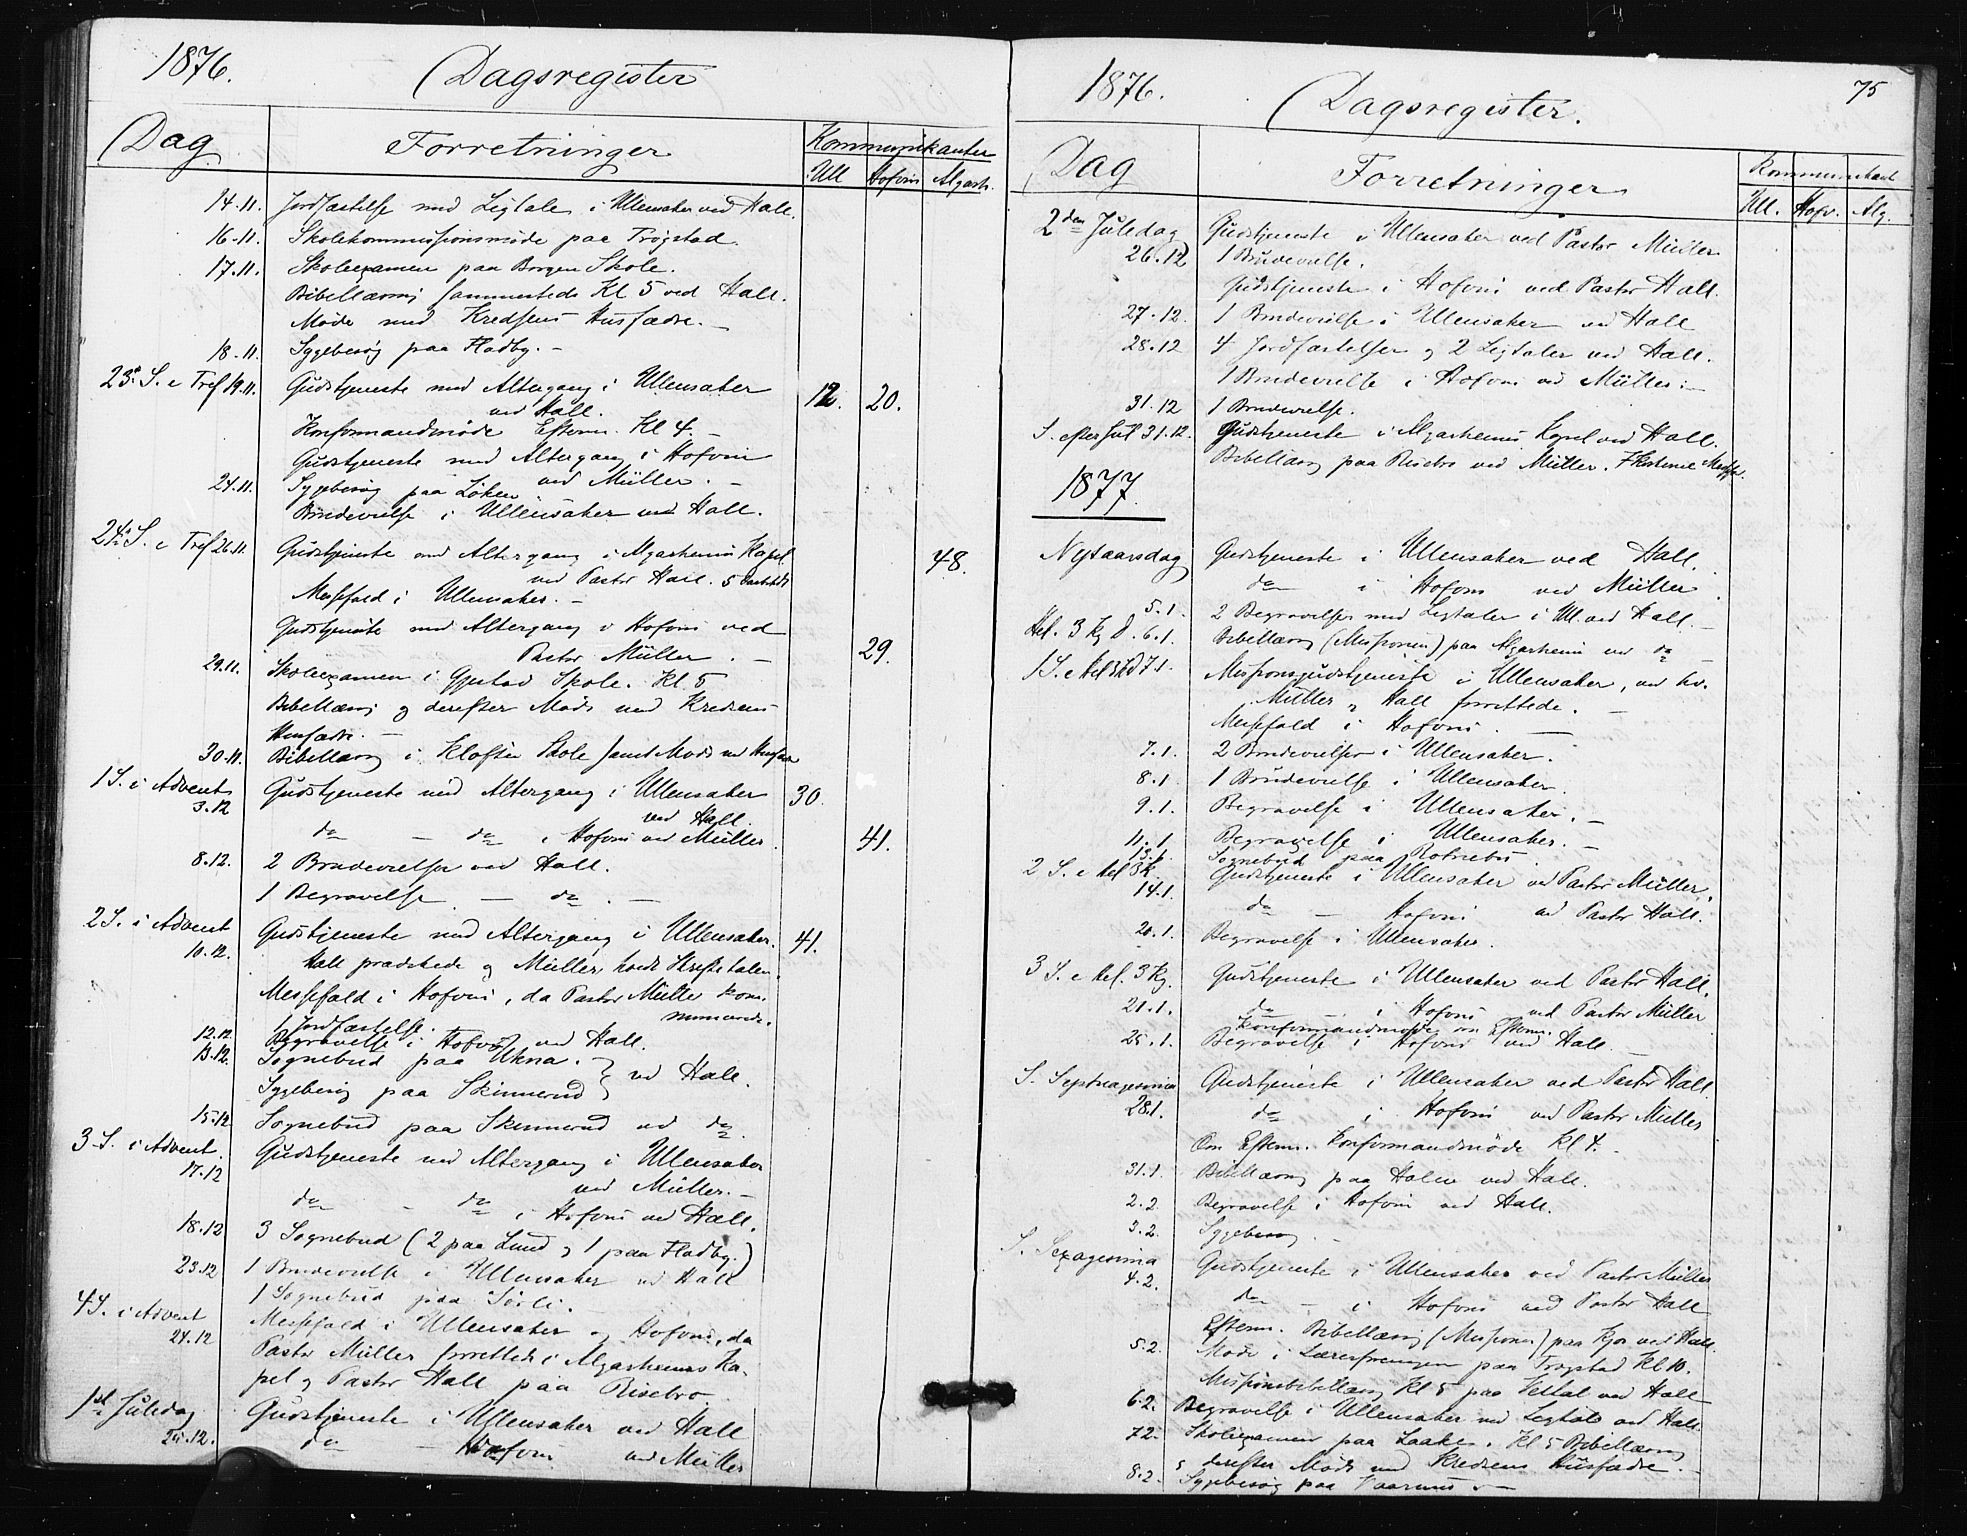 1876.
Dagsregister
Dag Forretninger Kommunikanter
Ull Hofvin Algarh.
14-11. Jordfæstelse med Ligtale i Ullensaker ved Hall.
16-11. Skolekommissionsmöde paa Trögstad.
17.11. Skoleexamen paa Borgen Skole.
Bibellæsng sammesteds Kl 5 ved Hall.
Möde med Kredsens Husfædre. —
18-11. Sygebesög paa Fladby. —
23d S. e Tref 19.11. Gudstjeneste med Altergang i Ullensaker 12. 20.
ved Hall.
Konfirmandmöde Efterm. Kl 4 —
Gudstjeneste med Altergang i Hofvin
ved Müller. —
24.11. Sygebesög paa Löken
Brudevielse i Ullensaker ved Hall.
24d S. e Tref 26.11. Gudstjeneste med Altergang i Algarheims Kapel 48.
ved Pastor Hall.
Messefald i Ullensaker. —
Gudstjeneste med Altergang i Hofvin ved
Pastor Müller. — 29.
29.11. Skoleexamen i Gjestad Skole. Kl. 5
Bibellæsng og derefter Möde med Kredsens
Husfædre. —
30.11. Bibellæsng i Kloften Skole samt Möde med Husfædre
1 S. i Advent Gudstjeneste med Altergang i Ullensaker 30.
3.12 ved Hall.
do — do i Hofvin ved Müller. 41.
8.12. 2 Brudevielser ved Hall.
1 Begravelse — do. —
2 S. i Advent Gudstjeneste med Altergang i Ullensaker. 41.
10.12. Hall prædikede og Müller holdt Skriftetalen.
Messefald i Hofvin, da Pastor Müller kom-
municerede.
1 Jordfæstelse.
12.12. Begravelse i Hofvin ved Hall.
13.12. Sognebud paa Ukna. } ved Hall.
Sygebesög paa Skinnerud
15.12 Sognebud paa Skinnerud ved do.
3 S. i Advent. Gudstjeneste med Altergang i Ullensaker
17.12 ved Müller. —
do — do i Hofvin ved Hall.
18.12 3 Sognebud (2 paa Lund og 1 paa Fladby.)
23.12 1 Brudevielse i Ullensaker ved Hall
1 Sognebud paa Sörli.
4 S. i Advent Messefald i Ullensaker og Hofvin, da
24.12 Pastor Müller forrettede i Algarheims Ka-
pel og Pastor Hall paa Risebro.
1ste Juledag Gudstjeneste i Ullensaker ved Hall
25.12. do — Hofvin ved Müller
1876. 75
Dagsregister.
Dag Forretninger Kommunikant
Ull. Hofv. Alg.
2den Juledag Gudstjeneste i Ullensaker ved Pastor Müller
26.12 1 Brudevielse.
Gudstjeneste i Hofvin ved Pastor Hall.
27.12. 1 Brudevielse i Ullensaker ved Hall
28.12 4 Jordfæstelser og 2 Ligtaler ved Hall.
1 Brudevielse i Hofvin ved Müller. —
31.12 1 Brudevielse.
S. efter Jul 31.12. Gudstjeneste i Algarheims Kapel ved Hall.
Bibellæsng paa Risebro ved Müller.
1877.
Nytaarsdag Gudstjeneste i Ullensaker ved Hall.
do i Hofvin ved Müller.
5.1. 2 Begravelser med Ligtaler i Ull. ved Hall. —
Hel. 3 Kg D. 6.1. Bibellæsng (Missionen) paa Algarheim ved do —
1 S. e Hel 3 Kd 7.1. Missionsgudstjeneste i Ullensaker, ved hv.
Müller og Hall forrettede. —
Messefald i Hofvin. —
7.1. 2 Brudevielser i Ullensaker.
8.1. 1 Brudevielse i Ullensaker.
9.1. Begravelse i Ullensaker. —
11.1. Begravelse i Ullensaker. —
13.1. Sognebud paa
2 S. e Hel 3 K. Gudstjeneste i Ullensaker ved Pastor Müller.
14.1. do — Hofvin ved Pastor Hall.
20.1. Begravelse i Ullensaker.
3 S. e Hel. 3 Kg. Gudstjeneste i Ullensaker ved Pastor Hall.
21.1. do — i Hofvin ved Pastor Müller
Konfirmandmöde om Efterm.
25.1. Begravelse i Hofvin ved Hall. —
S. Septuagesima Gudstjeneste i Ullensaker ved Pastor Hall.
28.1. do i Hofvin ved Pastor Müller
Om Efterm. Konfirmandmöde Kl 4.
31.1. Bibellæsng paa Holm ved Hall.
2.2. Begravelse i Hofvin ved Hall.
3.2. Sygebesög. —
S. Sexagesima Gudstjeneste i Ullensaker ved Pastor Müller
4.2. do — i Hofvin ved Pastor Hall
Efterm. Bibellæsng (Missionen) paa Kjos ved Hall.
5.2. Möde i Lærerforeningen paa Trögstad Kl 10.
Missionsbibellæsng Kl 5 paa Veltal ved Hall
6.2. Begravelse i Ullensaker med Ligtale ved Hall.
7.2. Skoleexamen paa Laake. Kl 5 Bibellæsng
derefter Möde med Kredsens Husfædre. —
8.2. Sygebesög paa